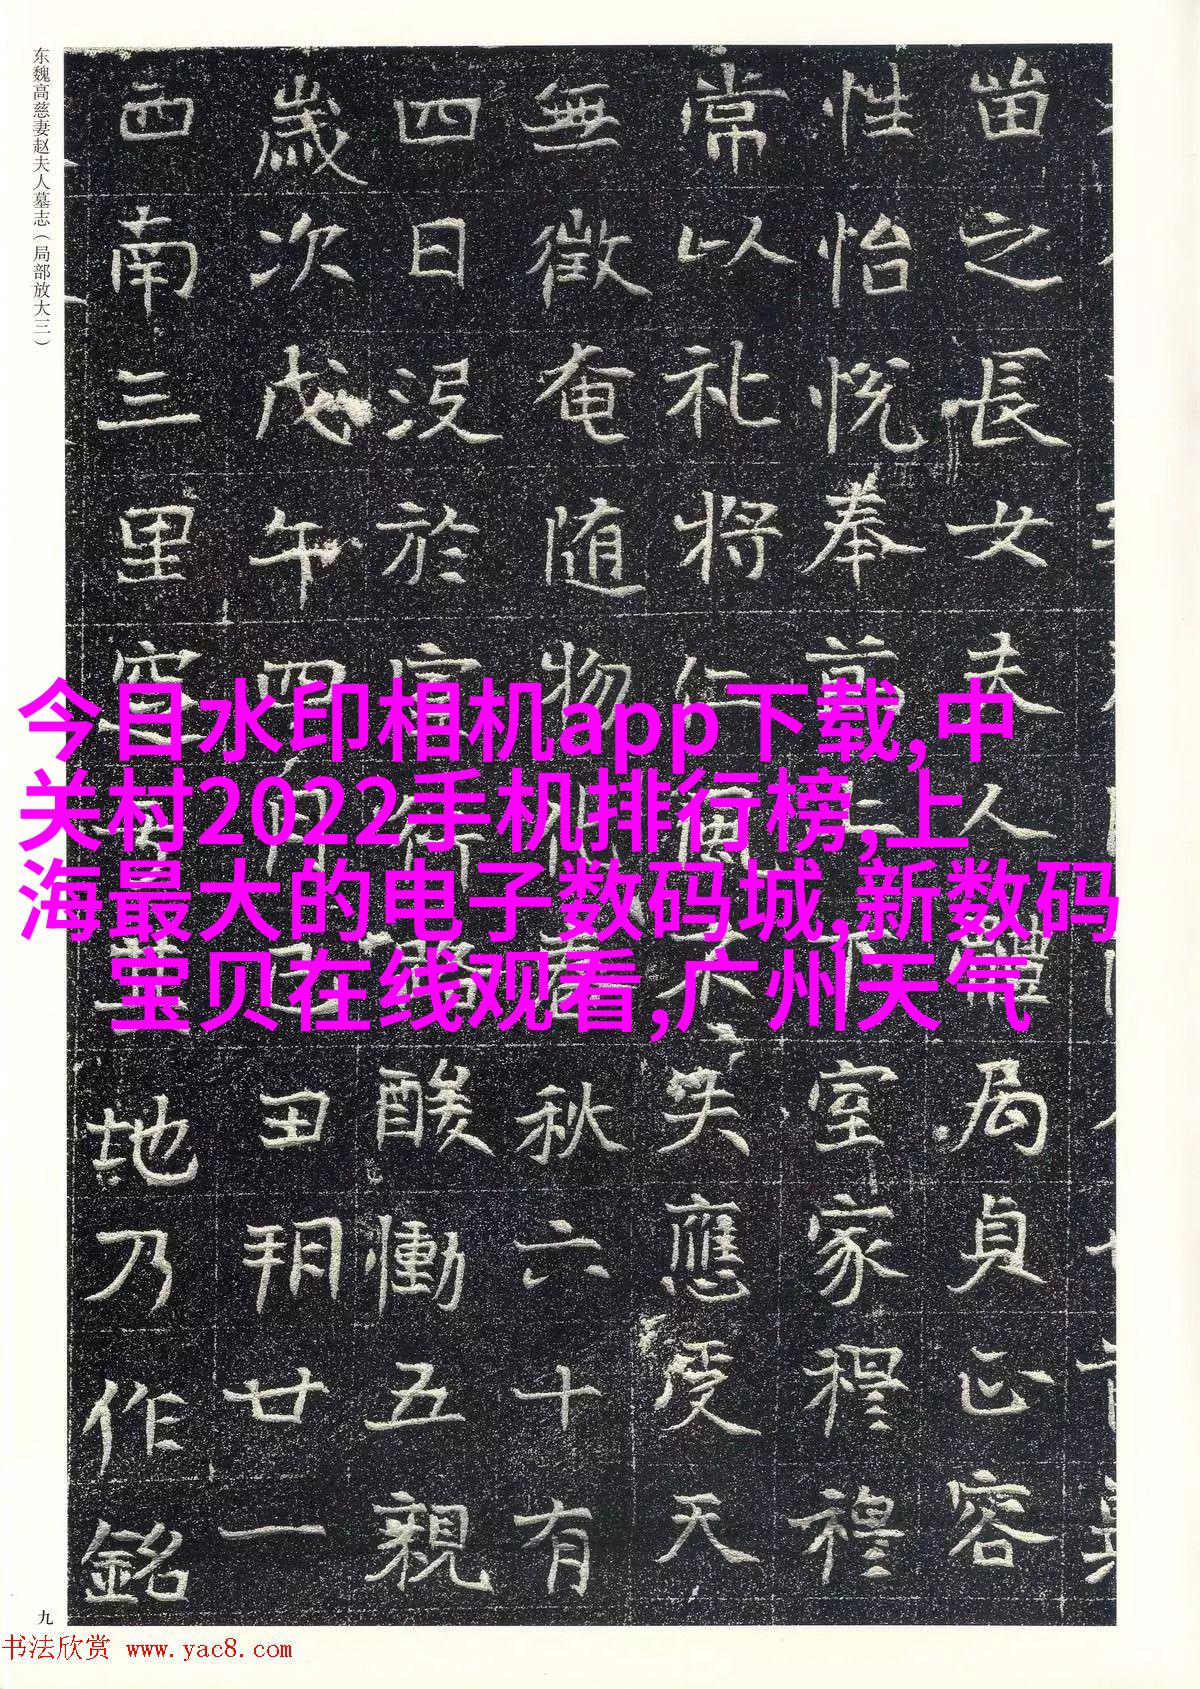 之長女夫人體局貞正容
性怡悦奉下室家穆穆
常以礼将仁不失應受天
無徵奄随物化春秋六十有
四日没於官所酸慟五親
歲次戊午四月己丑朔廿一
西南三里空地乃作銘
东魏高慈妻赵夫人墓志（局部放大三）
九
今日水印相机app下载,中
关村2022手机排行榜,上
海最大的电子数码城,新数码
宝贝在线观看,广州天气
书法欣赏 www.yac8.com